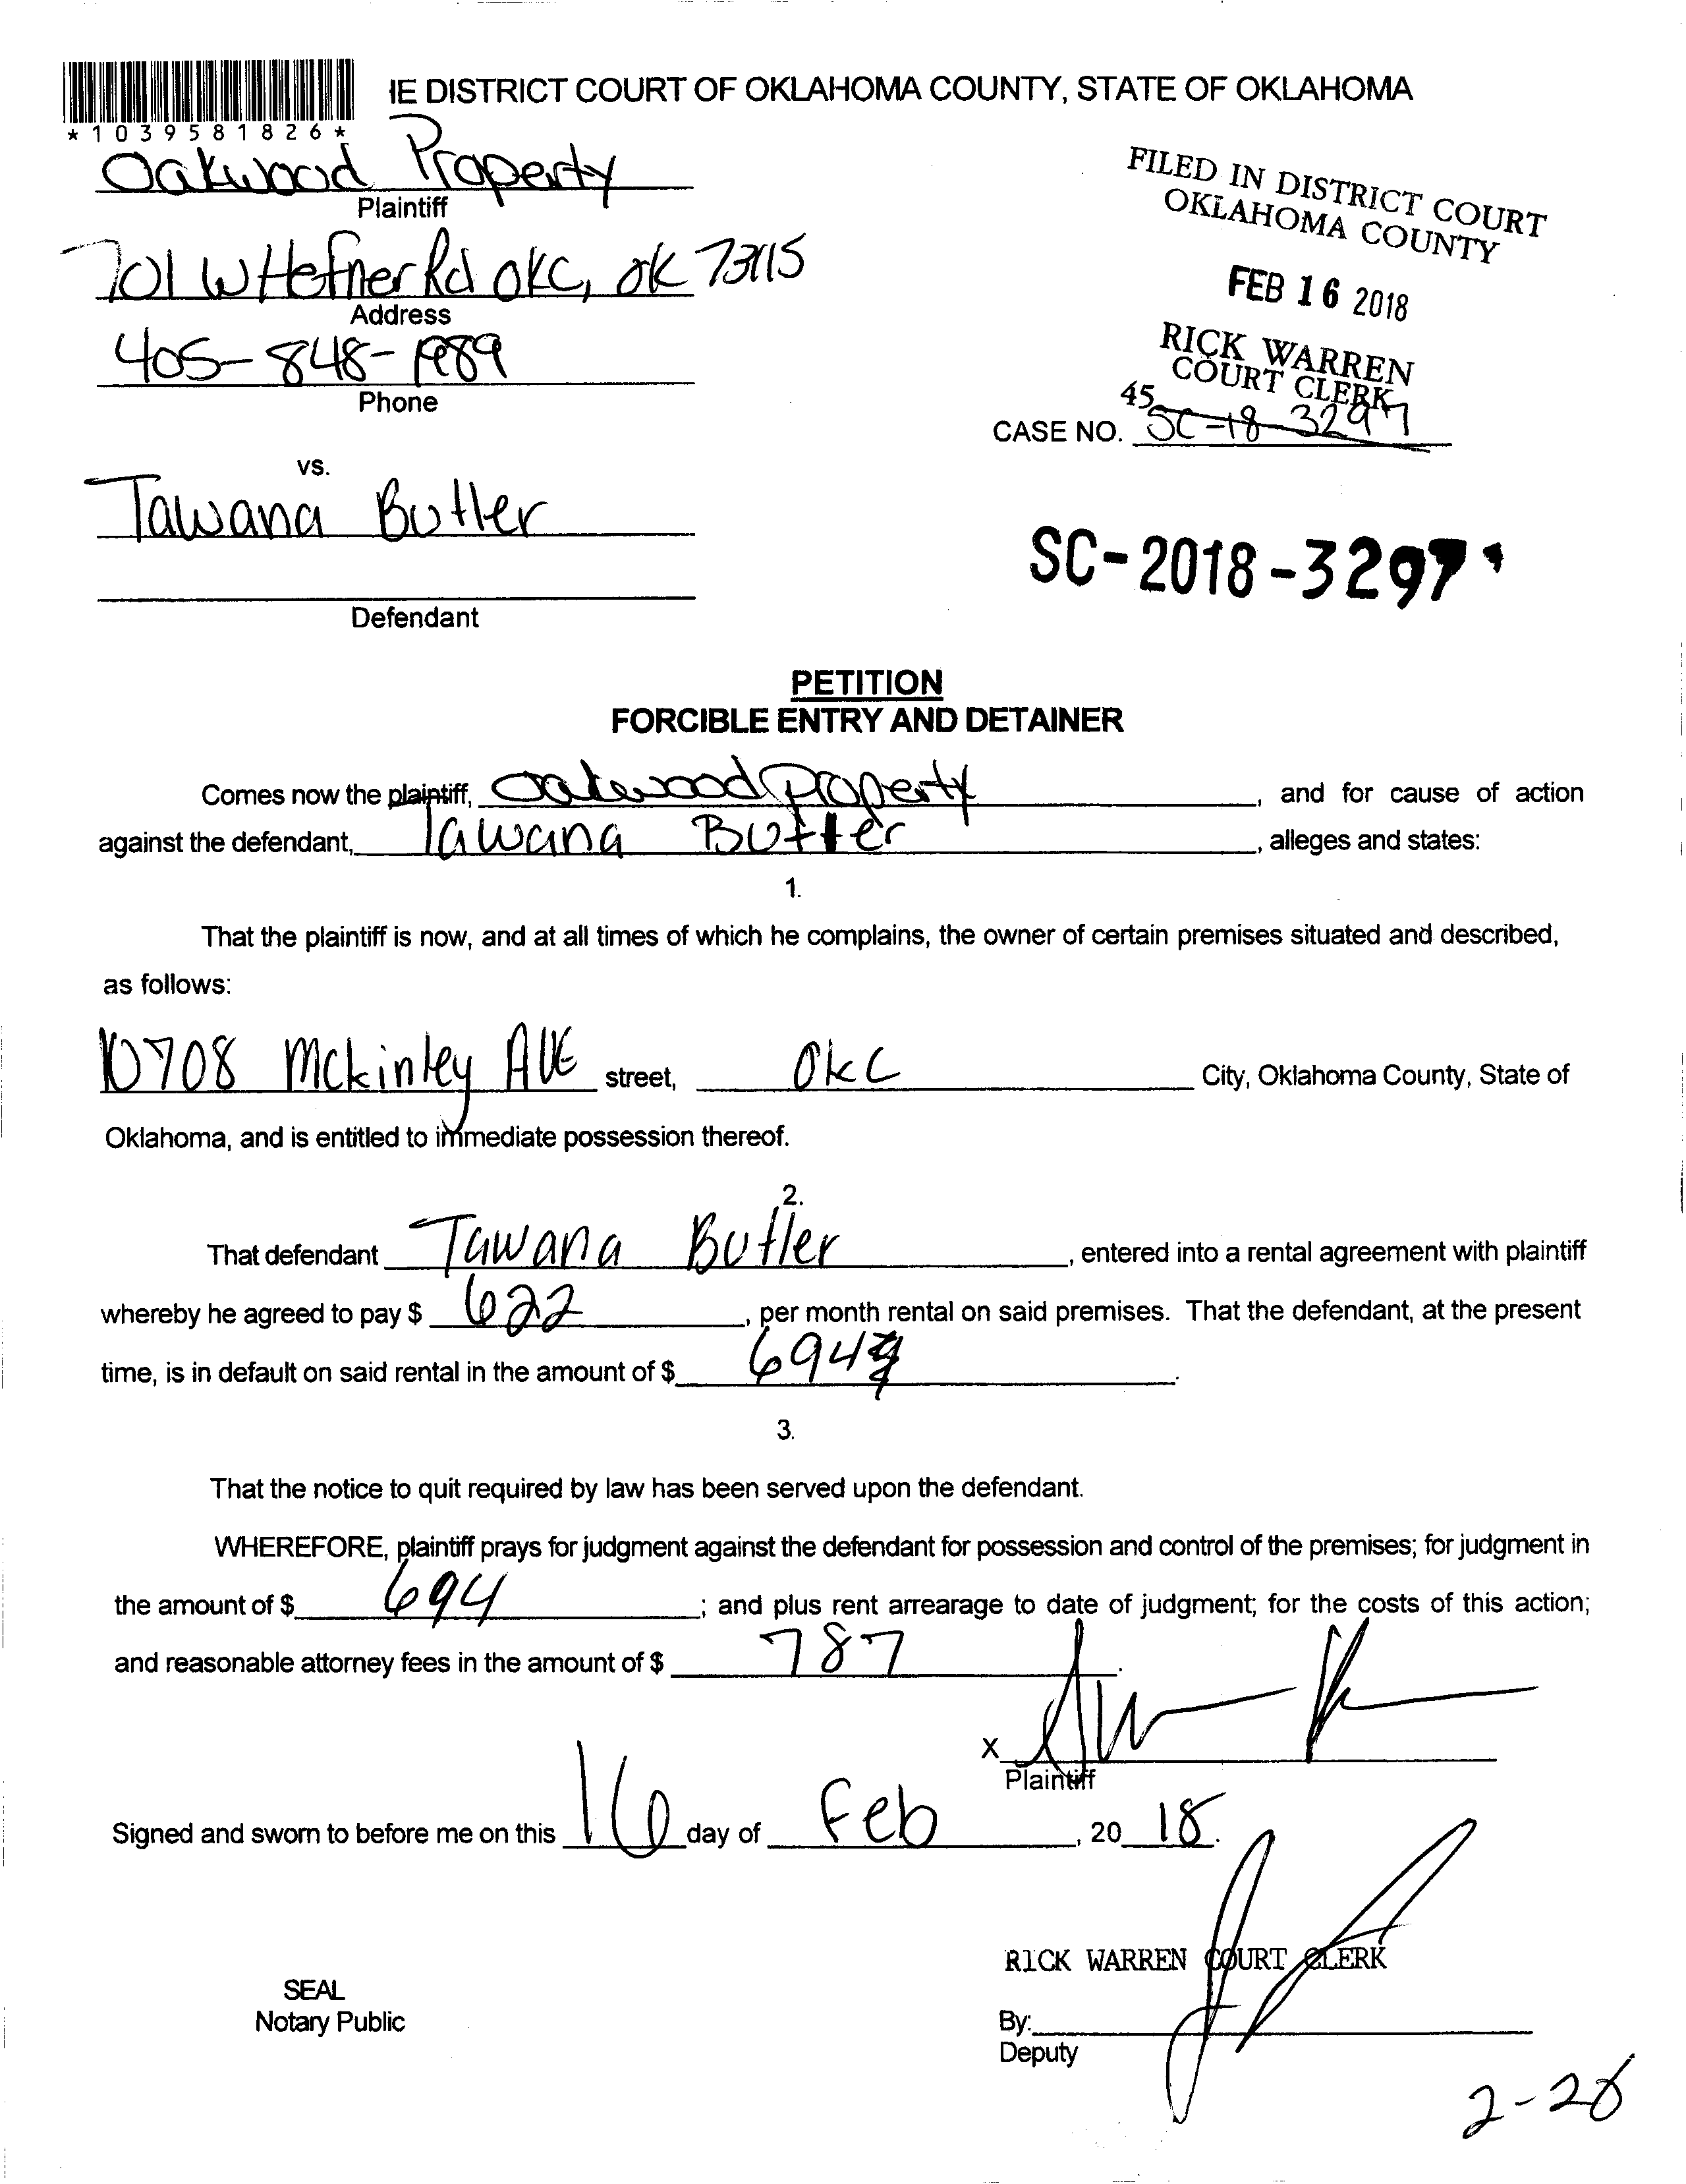 IE DISTRICT COURT OF OKLAHOMA COUNTY, STATE OF OKLAHOMA
*1039581826*
Oakwood Property
Plaintiff
701 W Hefner Rd OKC, OK 73115
Address
405-848-1989
Phone
vs.
Tawana Butler
Defendant
FILED IN DISTRICT COURT
OKLAHOMA COUNTY
FEB 16 2018
RICK WARREN
COURT CLERK
45
CASE NO. SC-18-3297
SC-2018-3297
PETITION
FORCIBLE ENTRY AND DETAINER
Comes now the plaintiff, Oakwood Property, and for cause of action
against the defendant, Tawana Butler, alleges and states:
1.
That the plaintiff is now, and at all times of which he complains, the owner of certain premises situated and described,
as follows:
10708 Mckinley AVE street, OKC City, Oklahoma County, State of
Oklahoma, and is entitled to immediate possession thereof.
2.
That defendant Tawana Butler, entered into a rental agreement with plaintiff
whereby he agreed to pay $ 622, per month rental on said premises. That the defendant, at the present
time, is in default on said rental in the amount of $ 694.
3.
That the notice to quit required by law has been served upon the defendant.
WHEREFORE, plaintiff prays for judgment against the defendant for possession and control of the premises; for judgment in
the amount of $ 694; and plus rent arrearage to date of judgment; for the costs of this action;
and reasonable attorney fees in the amount of $ 787.
X
Plaintiff
Signed and sworn to before me on this 16 day of Feb, 20 18.
RICK WARREN COURT CLERK
SEAL
Notary Public
By:
Deputy